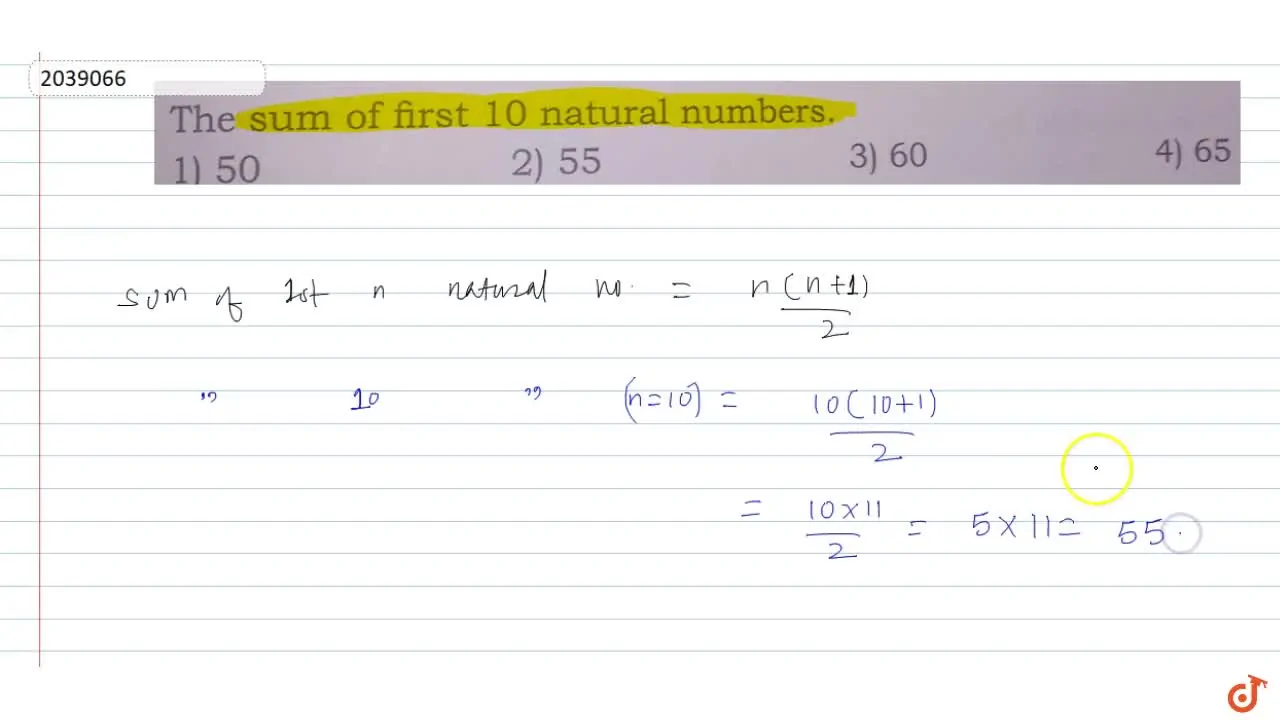 2039066
The sum of first 10 natural numbers.
1) 50 2) 55 3) 60 4) 65
sum of 1st n natural no. = n(n+1)/2
" 10 " (n=10) = 10(10+1)/2
= 10×11/2 = 5×11= 55.